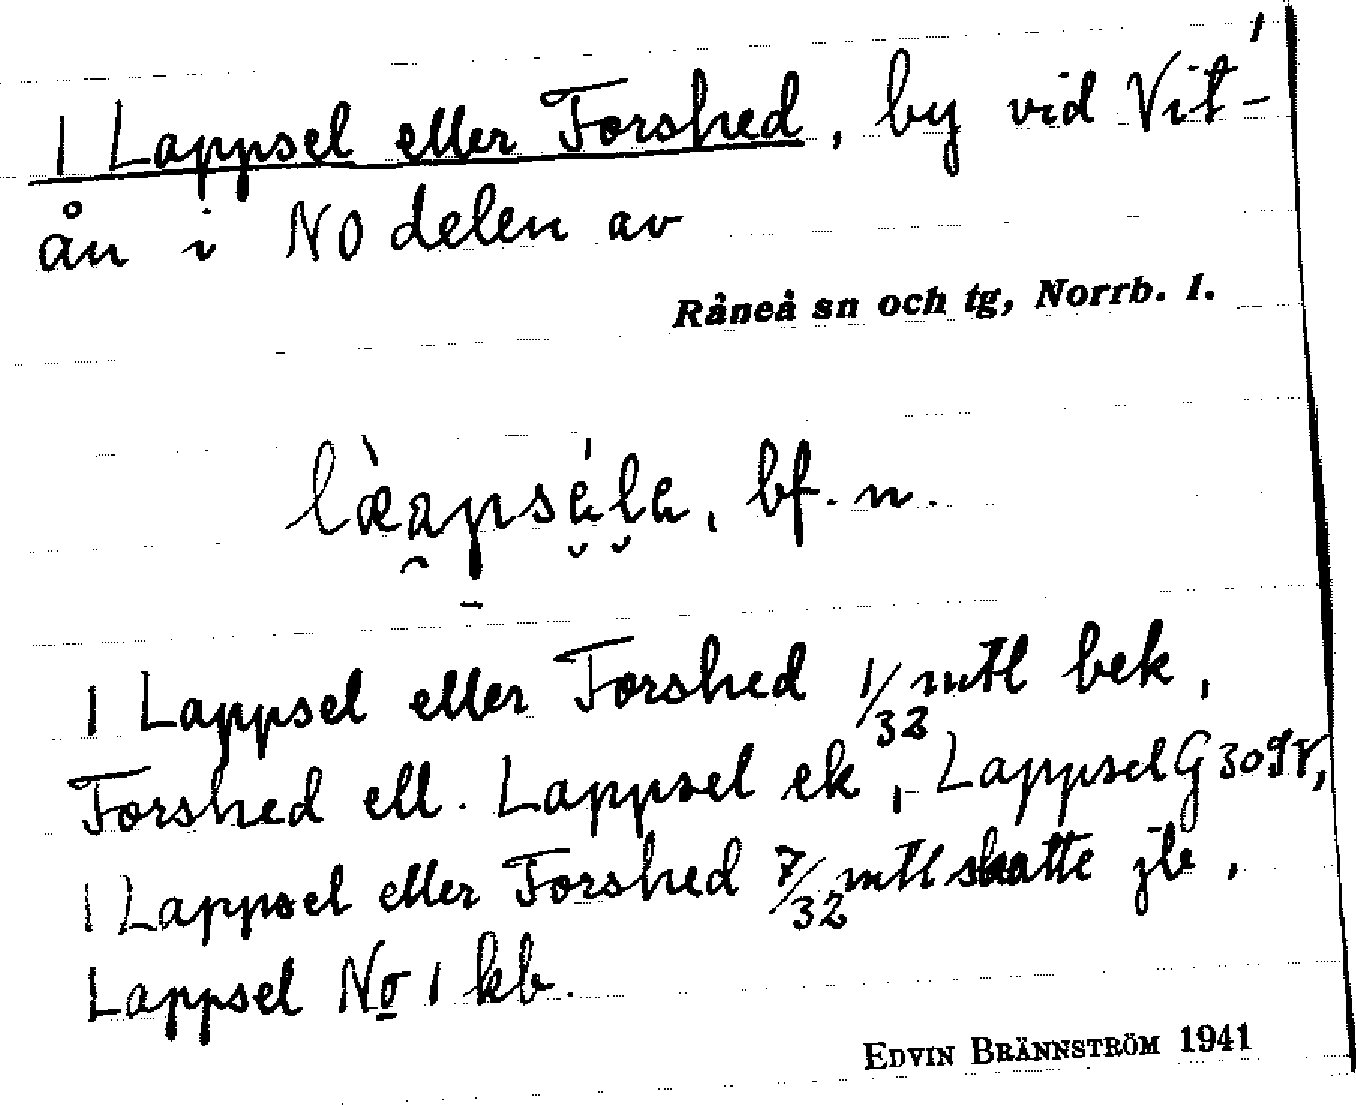 1 Lappsel eller Forshed, by vid Vit-
ån i NO delen av
Råneå sn och tg, Norrb. l.
bf. n.
1 Lappsel eller Forshed 1/32 mtl bek,
Forshed ell. Lappsel ek, Lappsel G
1 Lappsel eller Forshed 7/32 mtl skatte jb,
Lappsel No 1 kb.
EDVIN BRÄNNSTRÖM 1941